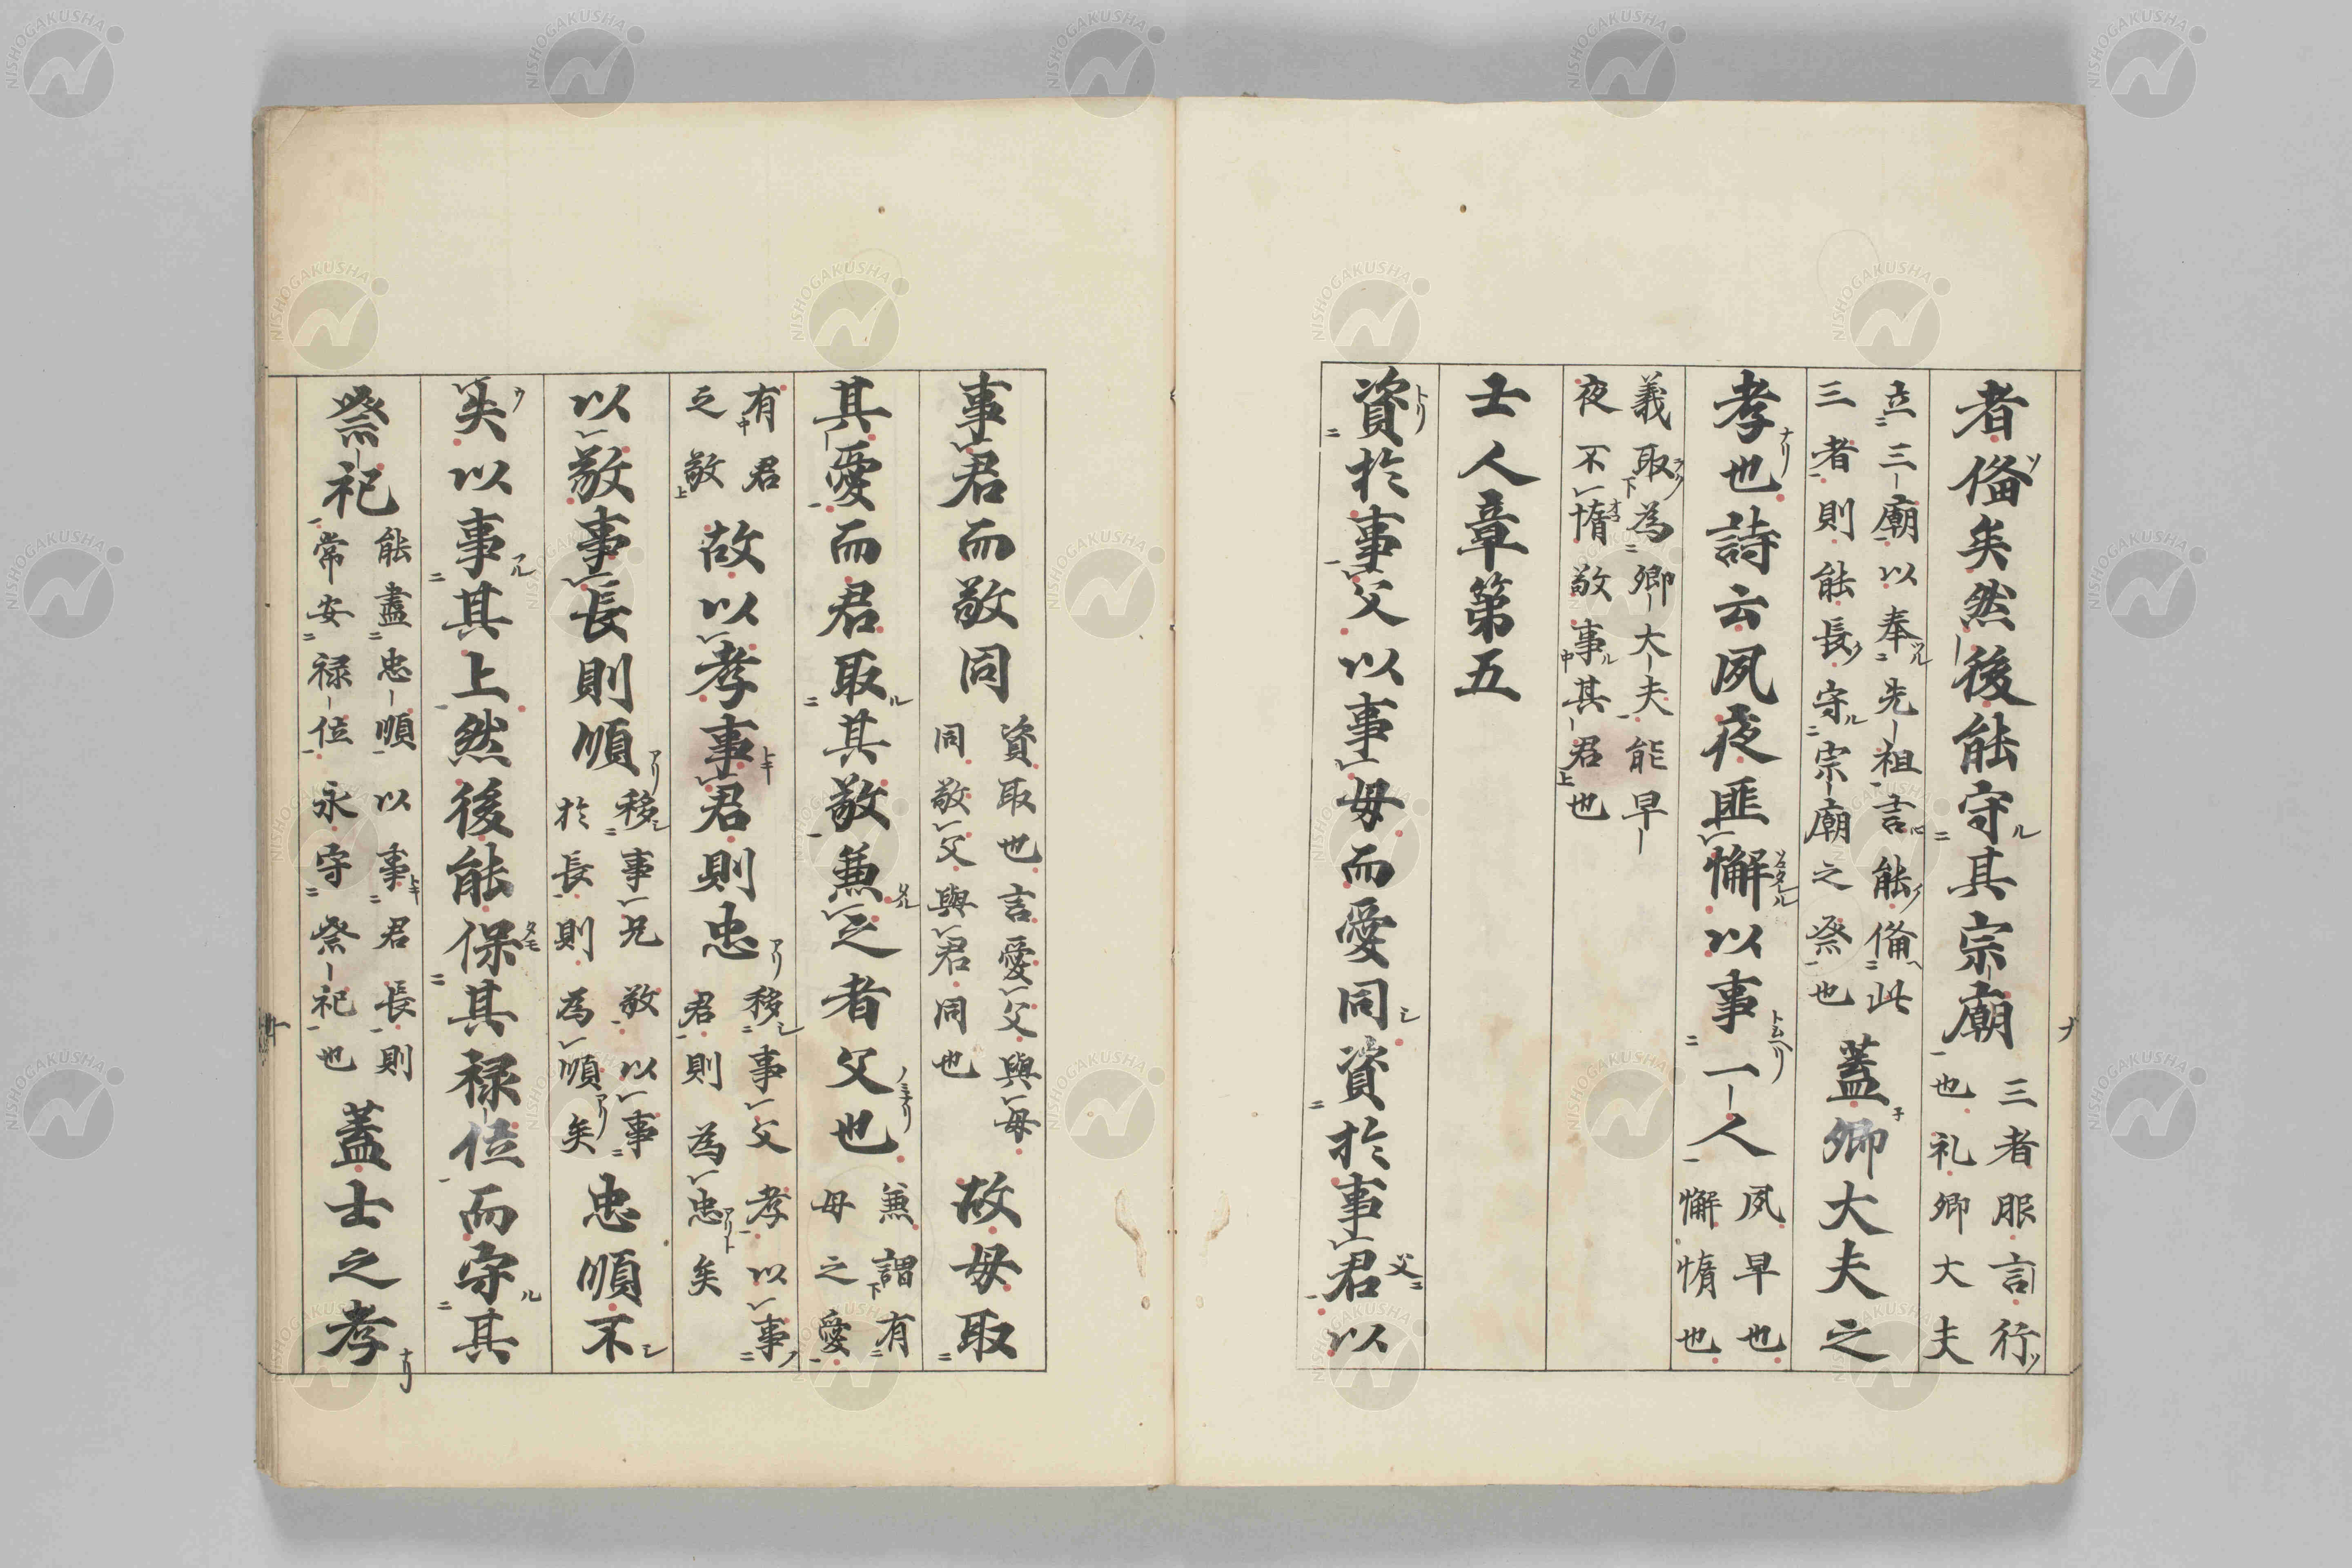 者俻矣然後能守其宗廟三者服言行
也礼卿大夫
立三廟以奉先祖言能俻此
三者則能長守宗廟之祭也蓋卿大夫之
孝也詩云夙夜匪懈以事一人夙早也
懈惰也
義取為卿大夫能早
夜不惰敬事其君也
士人章第五
資於事父以事母而愛同資於事君以
事君而敬同資取也言愛父與母
同敬父與君同也故母取
其愛而君取其敬兼之者父也兼謂有
母之愛
有君
之敬故以孝事君則忠移事父孝以事
君則為忠矣
以敬事長則順移事兄敬以事
於長則為順矣忠順不
失以事其上然後能保其禄位而守其
祭祀能盡忠順以事君長則
常安禄位永守祭祀也蓋士之孝
NISHOGAKUSHA